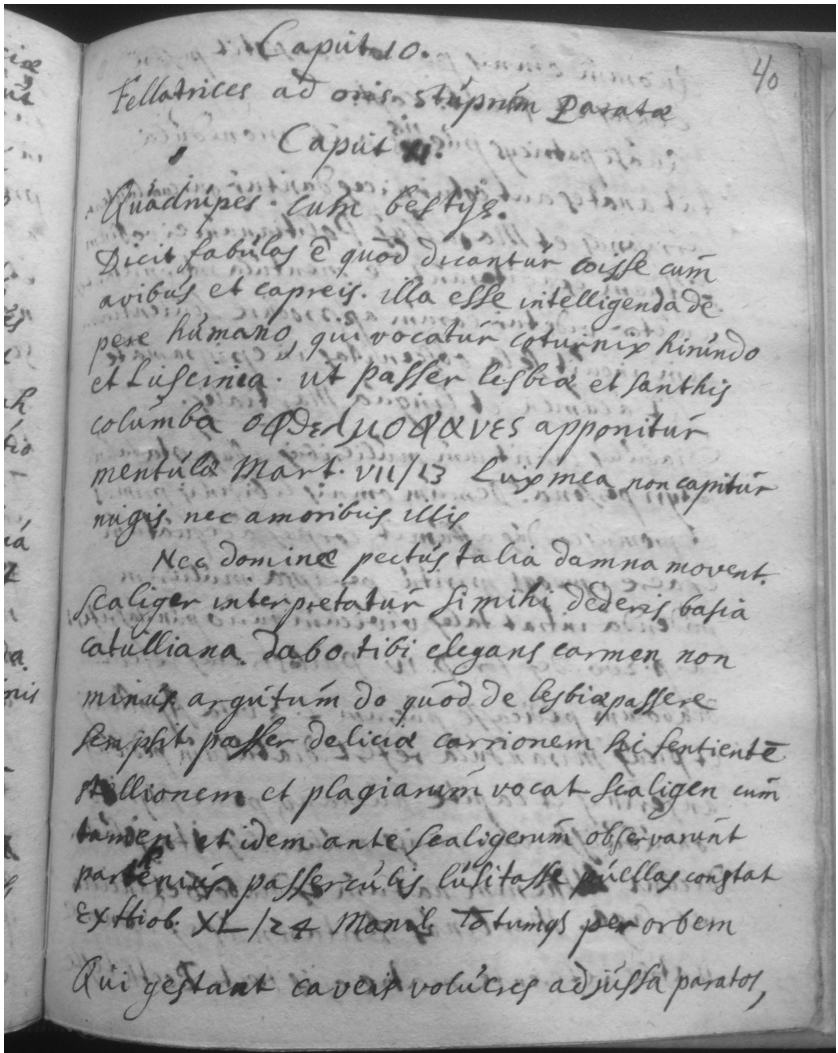 40
Caput 10.
Fellatrices ad oris stuprum Paratæ
Caput XI.
Quadrupes. cum bestys.
Dicit fabulas ē quod dicantur coisse cum
avibus et capreis. illa esse intelligenda de
pene humano, qui vocatur coturnix hirundo
et Luscinia. ut passer lesbiæ et Ianthis
columba apponitur
mentulæ Mart. VII/13 Lux mea non capitur
nugis nec amoribus illis
Nec dominæ pectus talia damna movent.
Scaliger interpretatur si mihi dederis basia
catulliana. dabo tibi elegans carmen non
minus argutum do quod de lesbiæ passere
sempsit passer deliciæ carrionem hic sentientē
stellionem et plagiarium vocat scaligen cum
tamen et idem ante scaligerum observarunt
partenius passerculis lusitasse puellas constat
ex XL/24 Manil. totumqs per orbem
Qui gestant caveis volucres ad jussa paratos,